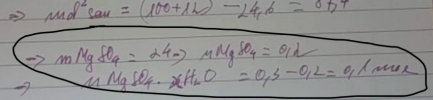 => md² sau = (100+12) - 24,6 = 87,4
=> mMgSO₄ = 24 => nMgSO₄ = 0,2
=> nMgSO₄.xH₂O = 0,3-0,2 = 0,1 mol